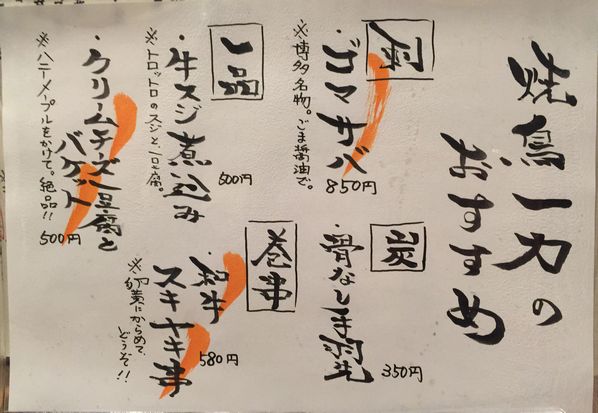 焼鳥一力の
おすすめ
刺
・ゴマサバ
※博多名物。ごま醤油で。
850円
炭
・骨なし手羽先
350円
一品
・牛スジ煮込み
※トロットロのスジと、豆腐。
500円
・クリームチーズ豆腐と
バケット
※ハニーメープルをかけて。絶品!!
500円
巻串
・和牛
スキヤキ串
※卵黄にからめて、
どうぞ!!
580円